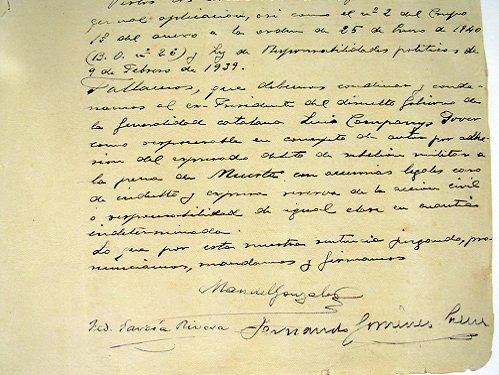 general aplicación, así como el nº 2 del Grupo
1º del anexo a la orden de 25 de Enero de 1940
(B. O. nº 26) y Ley de Responsabilidades políticas de
9 de Febrero de 1939.
Fallamos, que debemos condenar y conde-
namos al ex-Presidente del disuelto Gobierno de
la Generalidad catalana Luis Companys Jover
como responsable en concepto de autor por adhe-
sión del expresado delito de rebelión militar a
la pena de Muerte con accesorias legales caso
de indulto y expresa reserva de la acción civil
o responsabilidad de igual clase en cuantía
indeterminada.
Lo que por esta nuestra sentencia juzgando, pro-
nunciamos, mandamos y firmamos
Manuel Gonzalez
Fed. García Rivera Fernando Giménez